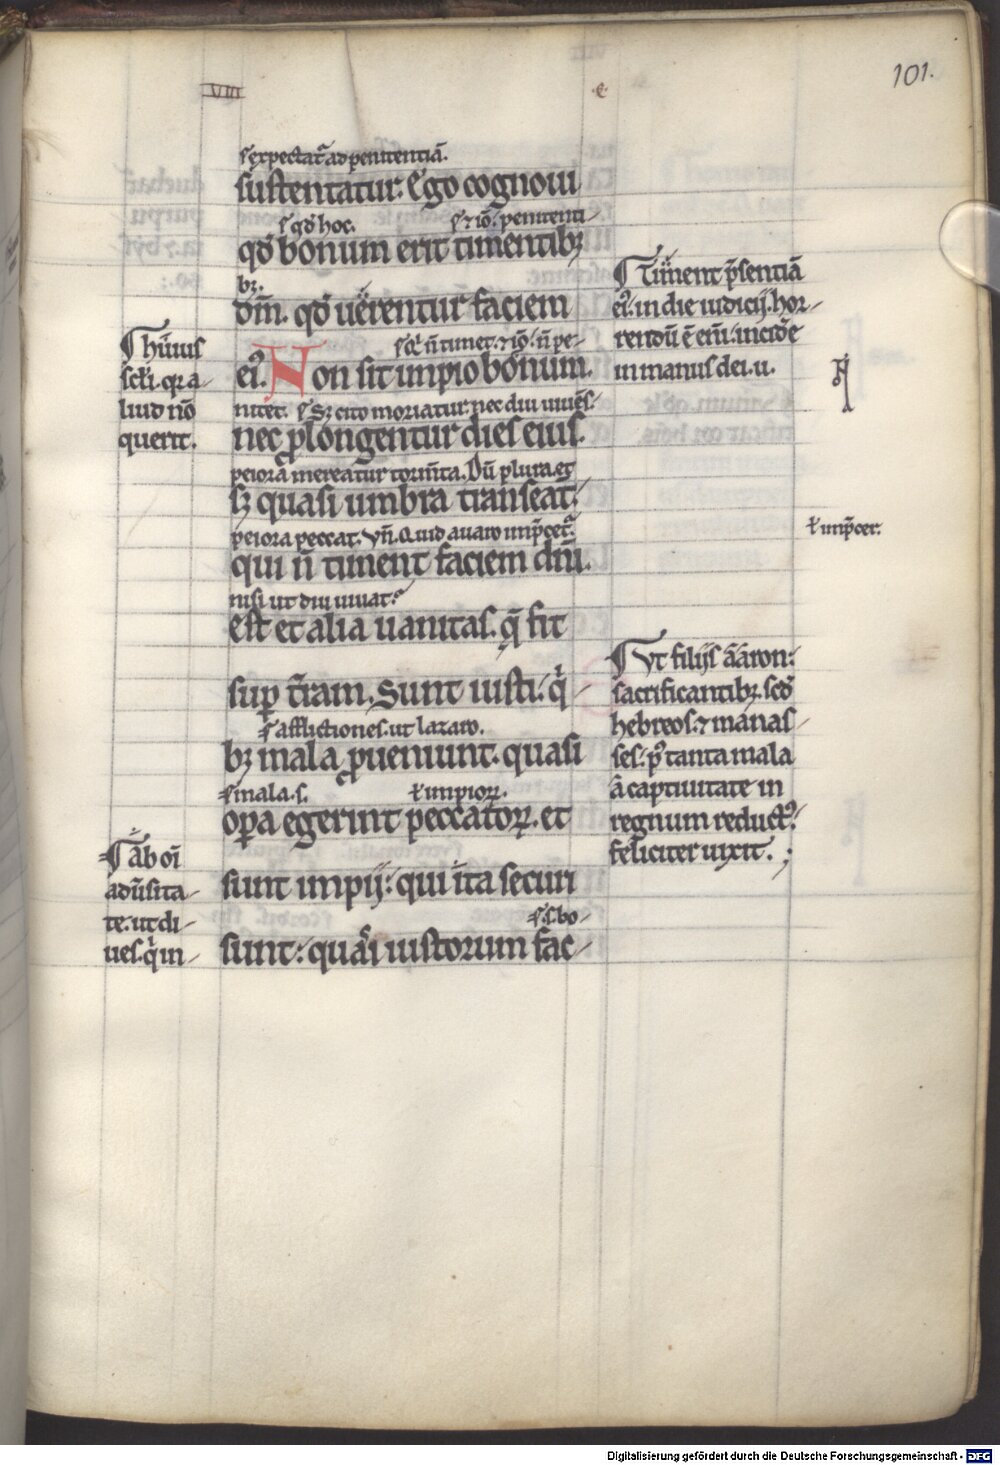 101.
VIII
.e.
s. expectat᷑ ad penitentiā.
sustentatur: Ego cognoui
s. qđ hoc. s. ⁊ iō. penitenti-
qđ bonum erit timentibꝫ
bꝫ.
dm̄. qđ uerentur faciem
s. qͥ n̄ timet. ⁊ iō. n̄ pe-
eiꝰ. Non sit impio bonum.
nitet. s. Sꝫ cito moriatur nec diu uiuēs-
nec ꝓlongentur dies eius.
peiora mereatur torm̄ta. Dū plura et
sꝫ quasi umbra transeat:
peiora peccat. Vn̄. Quid auaro imp̄cer.
qui n̄ timent faciem dn̄i.
nisi ut diu uiuat.
est et alia uanitas. q̄ fit
suꝑ t̄ram. Sunt iusti. qͥ-
s. afflictiones. ut lazaro.
bꝫ mala ꝓueniunt. quasi
s. mala. s. ł impioꝝ.
oꝑa egerint peccatoꝝ. et
sunt impij: qui ita securi
s. s. bo-
sunt: quasi iustorum fac-
¶ huius
scl̄i. qr a-
liud nō
querit.
¶ ab oī
adūsita-
te. ut di-
ues. qͥ in-
¶ Timent p̄sentiā
eiꝰ. in die iudicij. hor-
rendū ē eī. incidē
in manus dei. u.
ł imp̄cer.
¶ Vt filijs aaron:
sacrificantibꝫ. scđ
hebreos. ⁊ manas-
ses. pꝰ tanta mala
a captiuitate in
regnum reductꝰ.
feliciter uixit. ;
Digitalisierung gefördert durch die Deutsche Forschungsgemeinschaft - DFG